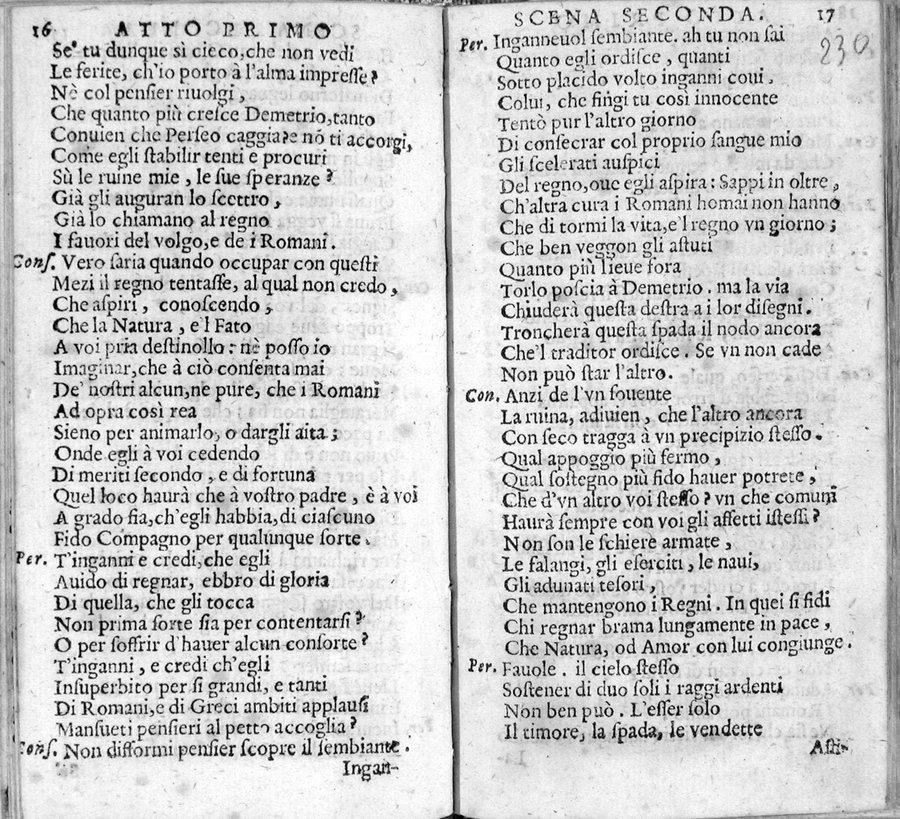 16 ATTO PRIMO
Se' tu dunque sì cieco, che non vedi
Le ferite, ch'io porto à l'alma impresse?
Nè col pensier riuolgi,
Che quanto più cresce Demetrio, tanto
Conuien che Perseo caggia? e nõ ti accorgi,
Come egli stabilir tenti e procuri
Sù le ruine mie, le sue speranze?
Già gli auguran lo scettro,
Già lo chiamano al regno
I fauori del volgo, e de i Romani.
Cons. Vero saria quando occupar con questi
Mezi il regno tentasse, al qual non credo,
Che aspiri, conoscendo,
Che la Natura, e'l Fato
A voi pria destinollo: nè posso io
Imaginar, che à ciò consenta mai
De' nostri alcun, ne pure, che i Romani
Ad opra così rea
Sieno per animarlo, o dargli aita;
Onde egli à voi cedendo
Di meriti secondo, e di fortuna
Quel loco haurà che à vostro padre, è à voi
A grado fia, ch'egli habbia, di ciascuno
Fido Compagno per qualunque sorte.
Per. T'inganni e credi, che egli
Auido di regnar, ebbro di gloria
Di quella, che gli tocca
Non prima sorte sia per contentarsi?
O per soffrir d'hauer alcun consorte?
T'inganni, e credi ch'egli
Insuperbito per sì grandi, e tanti
Di Romani, e di Greci ambiti applausi
Mansueti pensieri al petto accoglia?
Cons. Non difformi pensier scopre il sembiante.
Ingan-
SCENA SECONDA. 17
230
Per. Inganneuol sembiante. ah tu non sai
Quanto egli ordisce, quanti
Sotto placido volto inganni coui.
Colui, che fingi tu così innocente
Tentò pur l'altro giorno
Di consecrar col proprio sangue mio
Gli scelerati auspici
Del regno, oue egli aspira: Sappi in oltre,
Ch'altra cura i Romani homai non hanno
Che di tormi la vita, e'l regno vn giorno;
Che ben veggon gli astuti
Quanto più lieue fora
Torlo poscia à Demetrio. ma la via
Chiuderà questa destra a i lor disegni.
Troncherà questa spada il nodo ancora
Che'l traditor ordisce. Se vn non cade
Non può star l'altro.
Con. Anzi de l'vn souente
La ruina, adiuien, che l'altro ancora
Con seco tragga à vn precipizio stesso.
Qual appoggio più fermo,
Qual sostegno più fido hauer potrete,
Che d'vn altro voi stesso? vn che comuni
Haurà sempre con voi gli affetti istessi?
Non son le schiere armate,
Le falangi, gli eserciti, le naui,
Gli adunati tesori,
Che mantengono i Regni. In quei si fidi
Chi regnar brama lungamente in pace,
Che Natura, od Amor con lui congiunge.
Per. Fauole. il cielo stesso
Sostener di duo soli i raggi ardenti
Non ben può. L'esser solo
Il timore, la spada, le vendette
Assi-